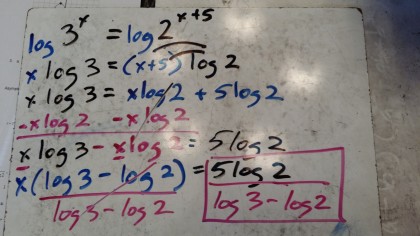 log 3^x = log 2^x+5
x log 3 = (x+5) log 2
x log 3 = x log 2 + 5 log 2
-x log 2 -x log 2
x log 3 - x log 2 = 5 log 2
x(log 3 - log 2) = 5 log 2
log 3 - log 2 log 3 - log 2